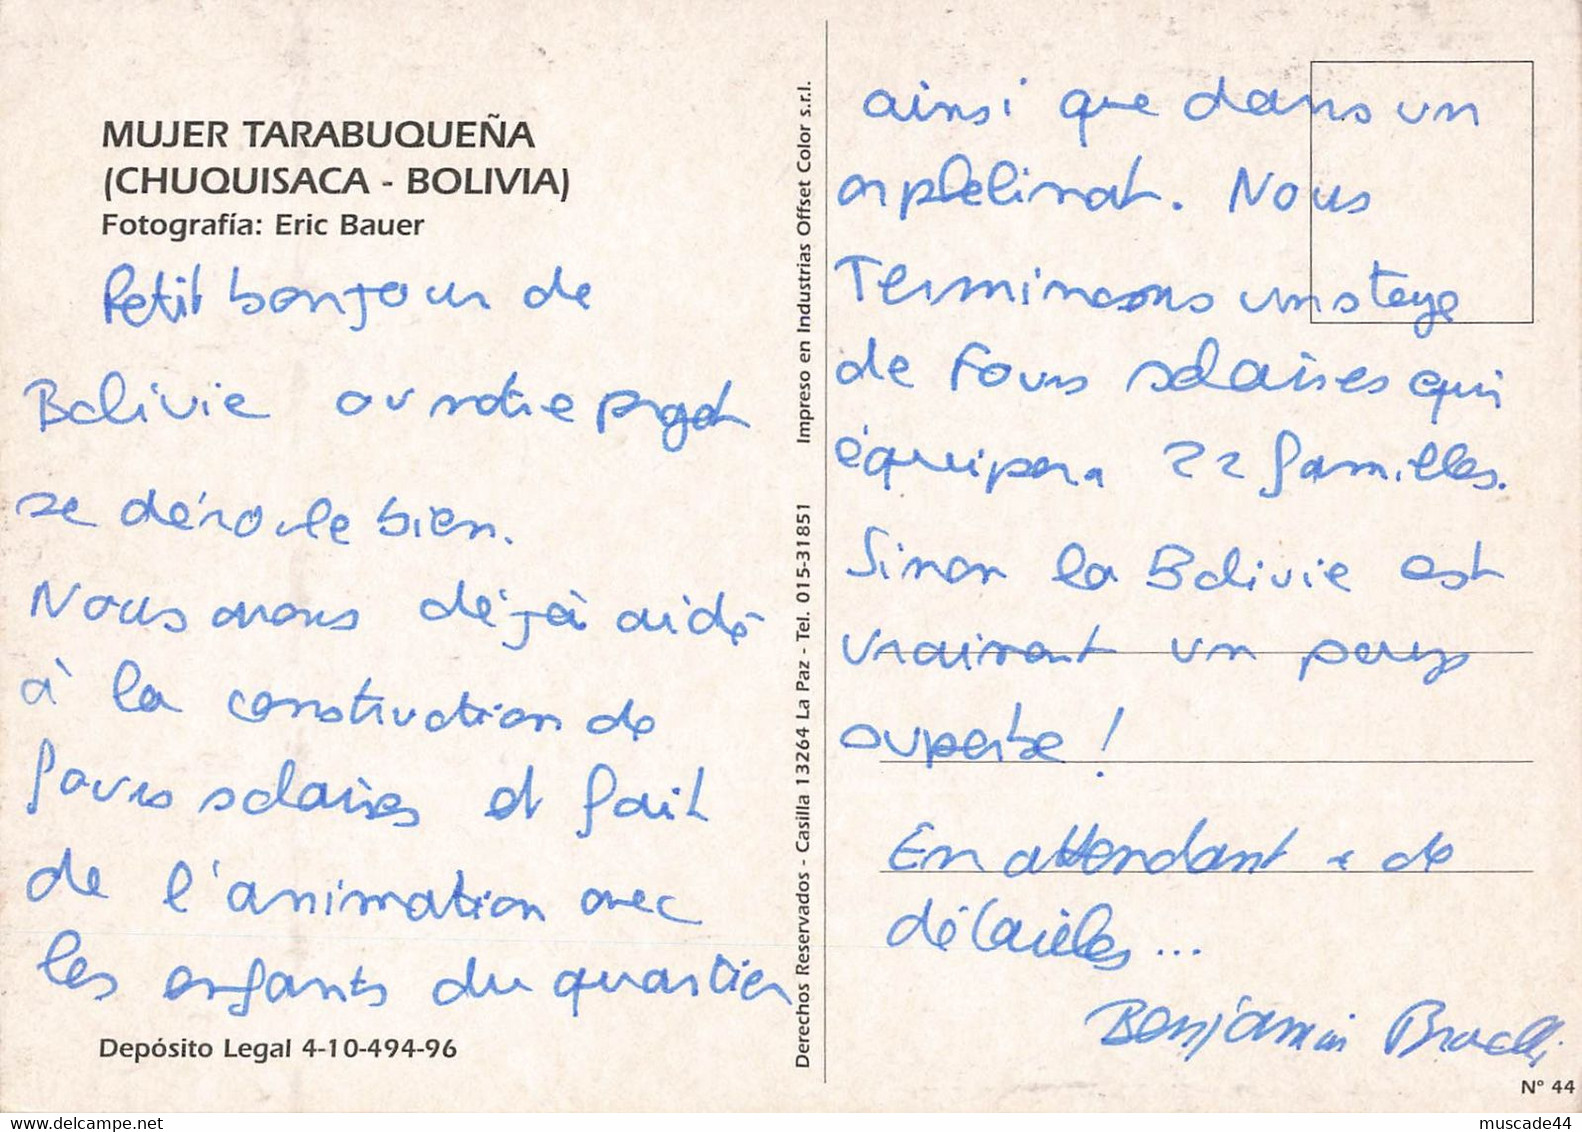 MUJER TARABUQUEÑA
(CHUQUISACA - BOLIVIA)
Fotografía: Eric Bauer
Petit bonjour de
Bolivie où notre projet
se déroule bien.
Nous avons déjà aidé
à la construction de
fours solaires et fait
de l'animation avec
les enfants du quartier
Depósito Legal 4-10-494-96
Derechos Reservados - Casilla 13264 La Paz - Tel. 015-31851 Impreso en Industrias Offset Color s.r.l.
ainsi que dans un
orphelinat. Nous
Terminons un stage
de Fours solaires qui
équipera 22 familles.
Sinon la Bolivie est
vraiment un pays
superbe !
En attendant + de
détailes...
Benjamin
N° 44
www.delcampe.net
muscade44